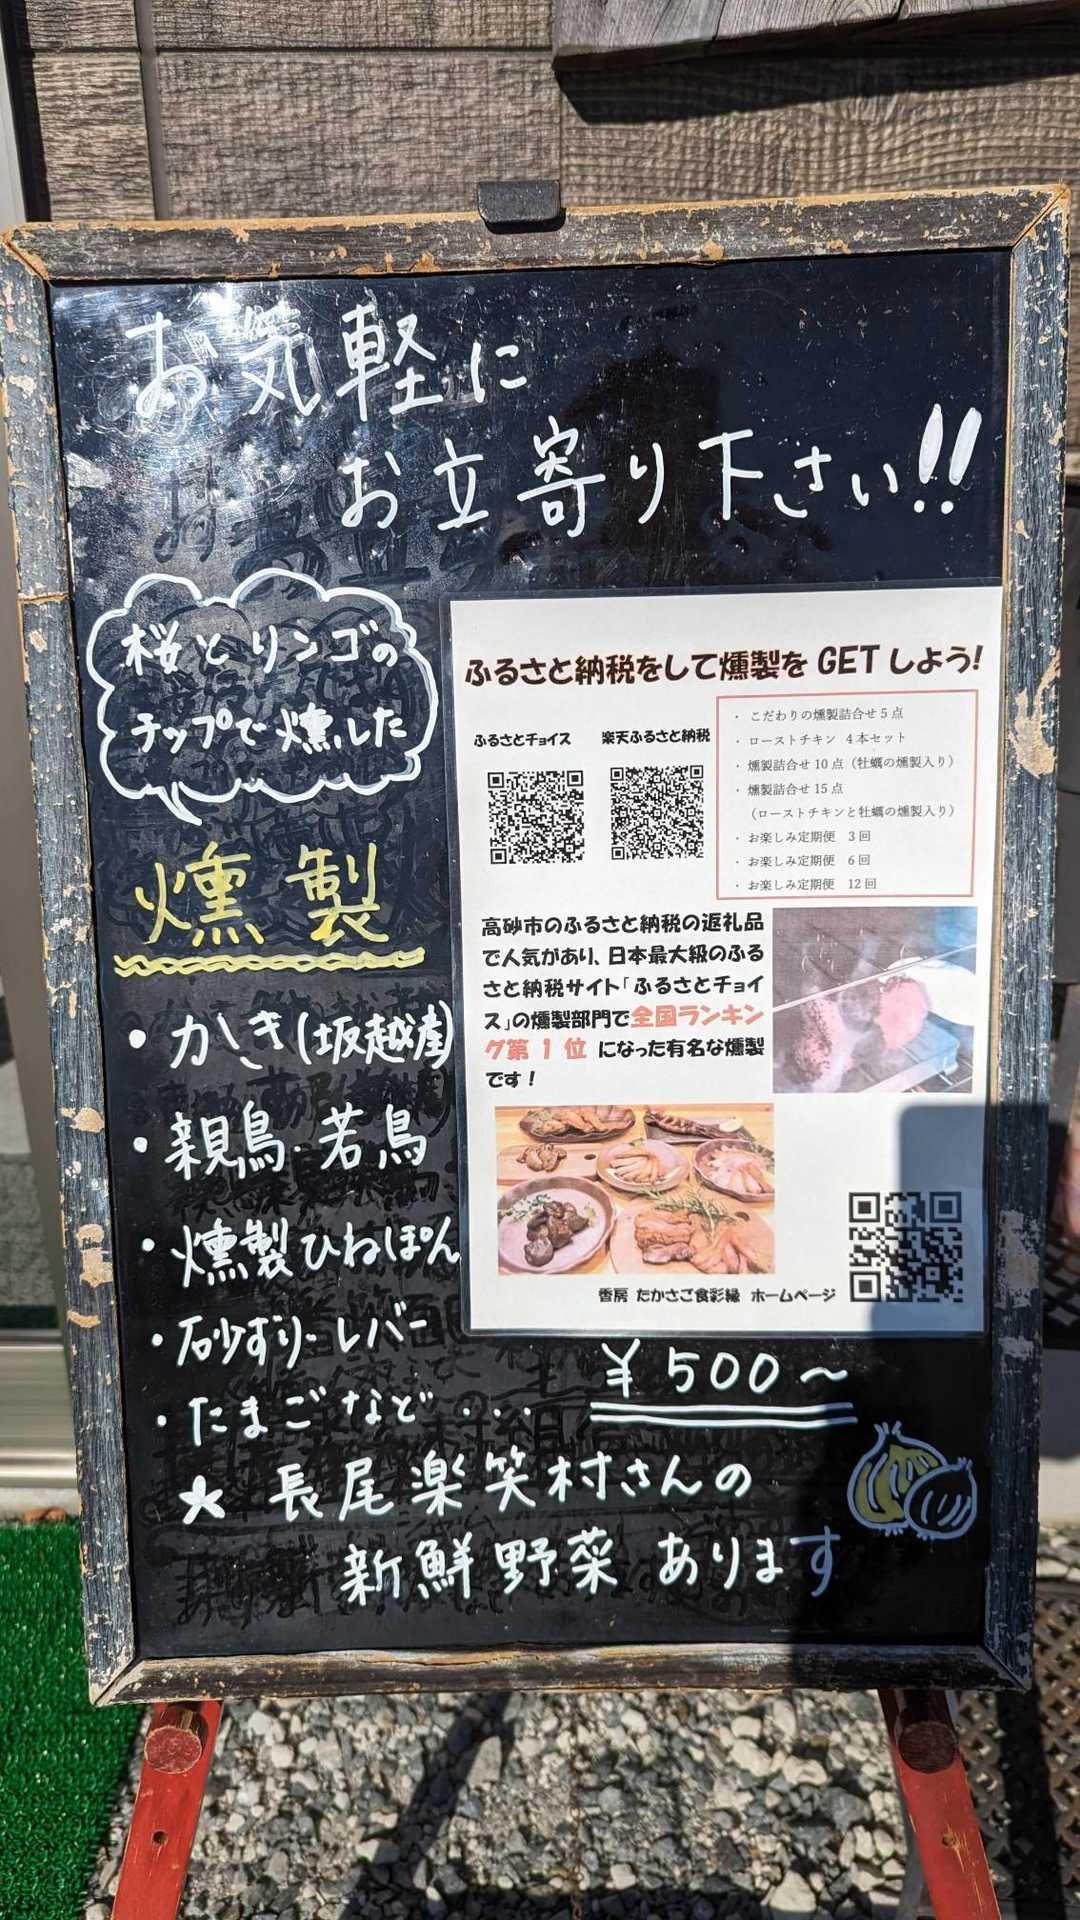 お気軽に
お立寄り下さい!!
桜とリンゴの
チップで燻した
燻製
・かき(坂越産)
・親鳥・若鳥
・燻製ひねぽん
・砂ずり・レバー
・たまごなど・・・・
¥500～
★長尾楽笑村さんの
新鮮野菜あります
ふるさと納税をして燻製を GET しよう!
ふるさとチョイス
楽天ふるさと納税
・ こだわりの燻製詰合せ5点
・ ローストチキン 4本セット
・ 燻製詰合せ10点（牡蠣の燻製入り）
・ 燻製詰合せ15点
（ローストチキンと牡蠣の燻製入り）
・ お楽しみ定期便 3回
・ お楽しみ定期便 6回
・ お楽しみ定期便 12回
高砂市のふるさと納税の返礼品
で人気があり、日本最大級のふる
さと納税サイト「ふるさとチョイ
ス」の燻製部門で全国ランキン
グ第 1 位 になった有名な燻製
です！
香房 たかさご食彩縁 ホームページ